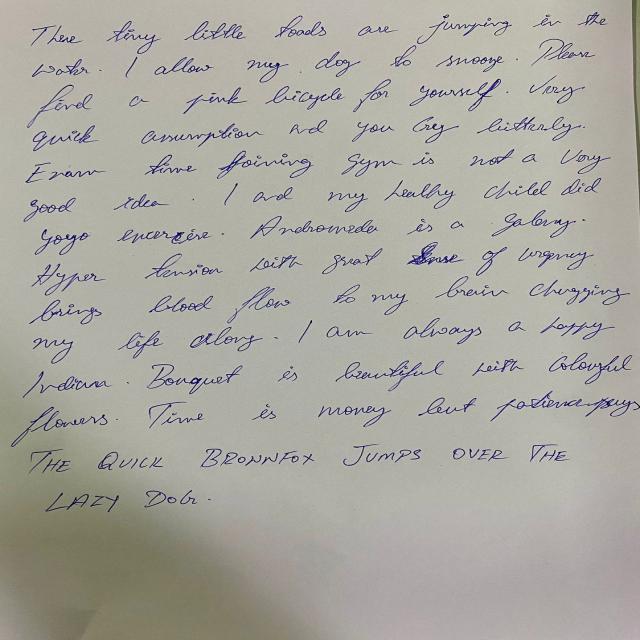 There tiny little toads are jumping in the
water. I allow my dog to snooze. Please
find a pink bicycle for yourself. Very
quick assumption and you Cry bitterly.
Exam time joining gym is not a Very
good idea. I and my healthy child did
yoga exercise. Andromeda is a galaxy.
Hyper tension with great sense of urgency
brings blood flow to my brain chugging
my life along. I am always a happy
Indiana. Bouquet is beautiful with Colourful
flowers. Time is money but patience pays
THE QUICK BROWNFOX JUMPS OVER THE
LAZY DOG.